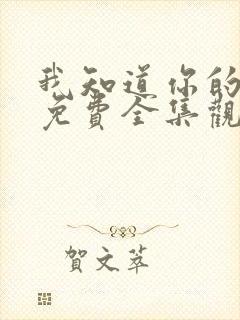 我知道你的
免費全集觀
賀文萃